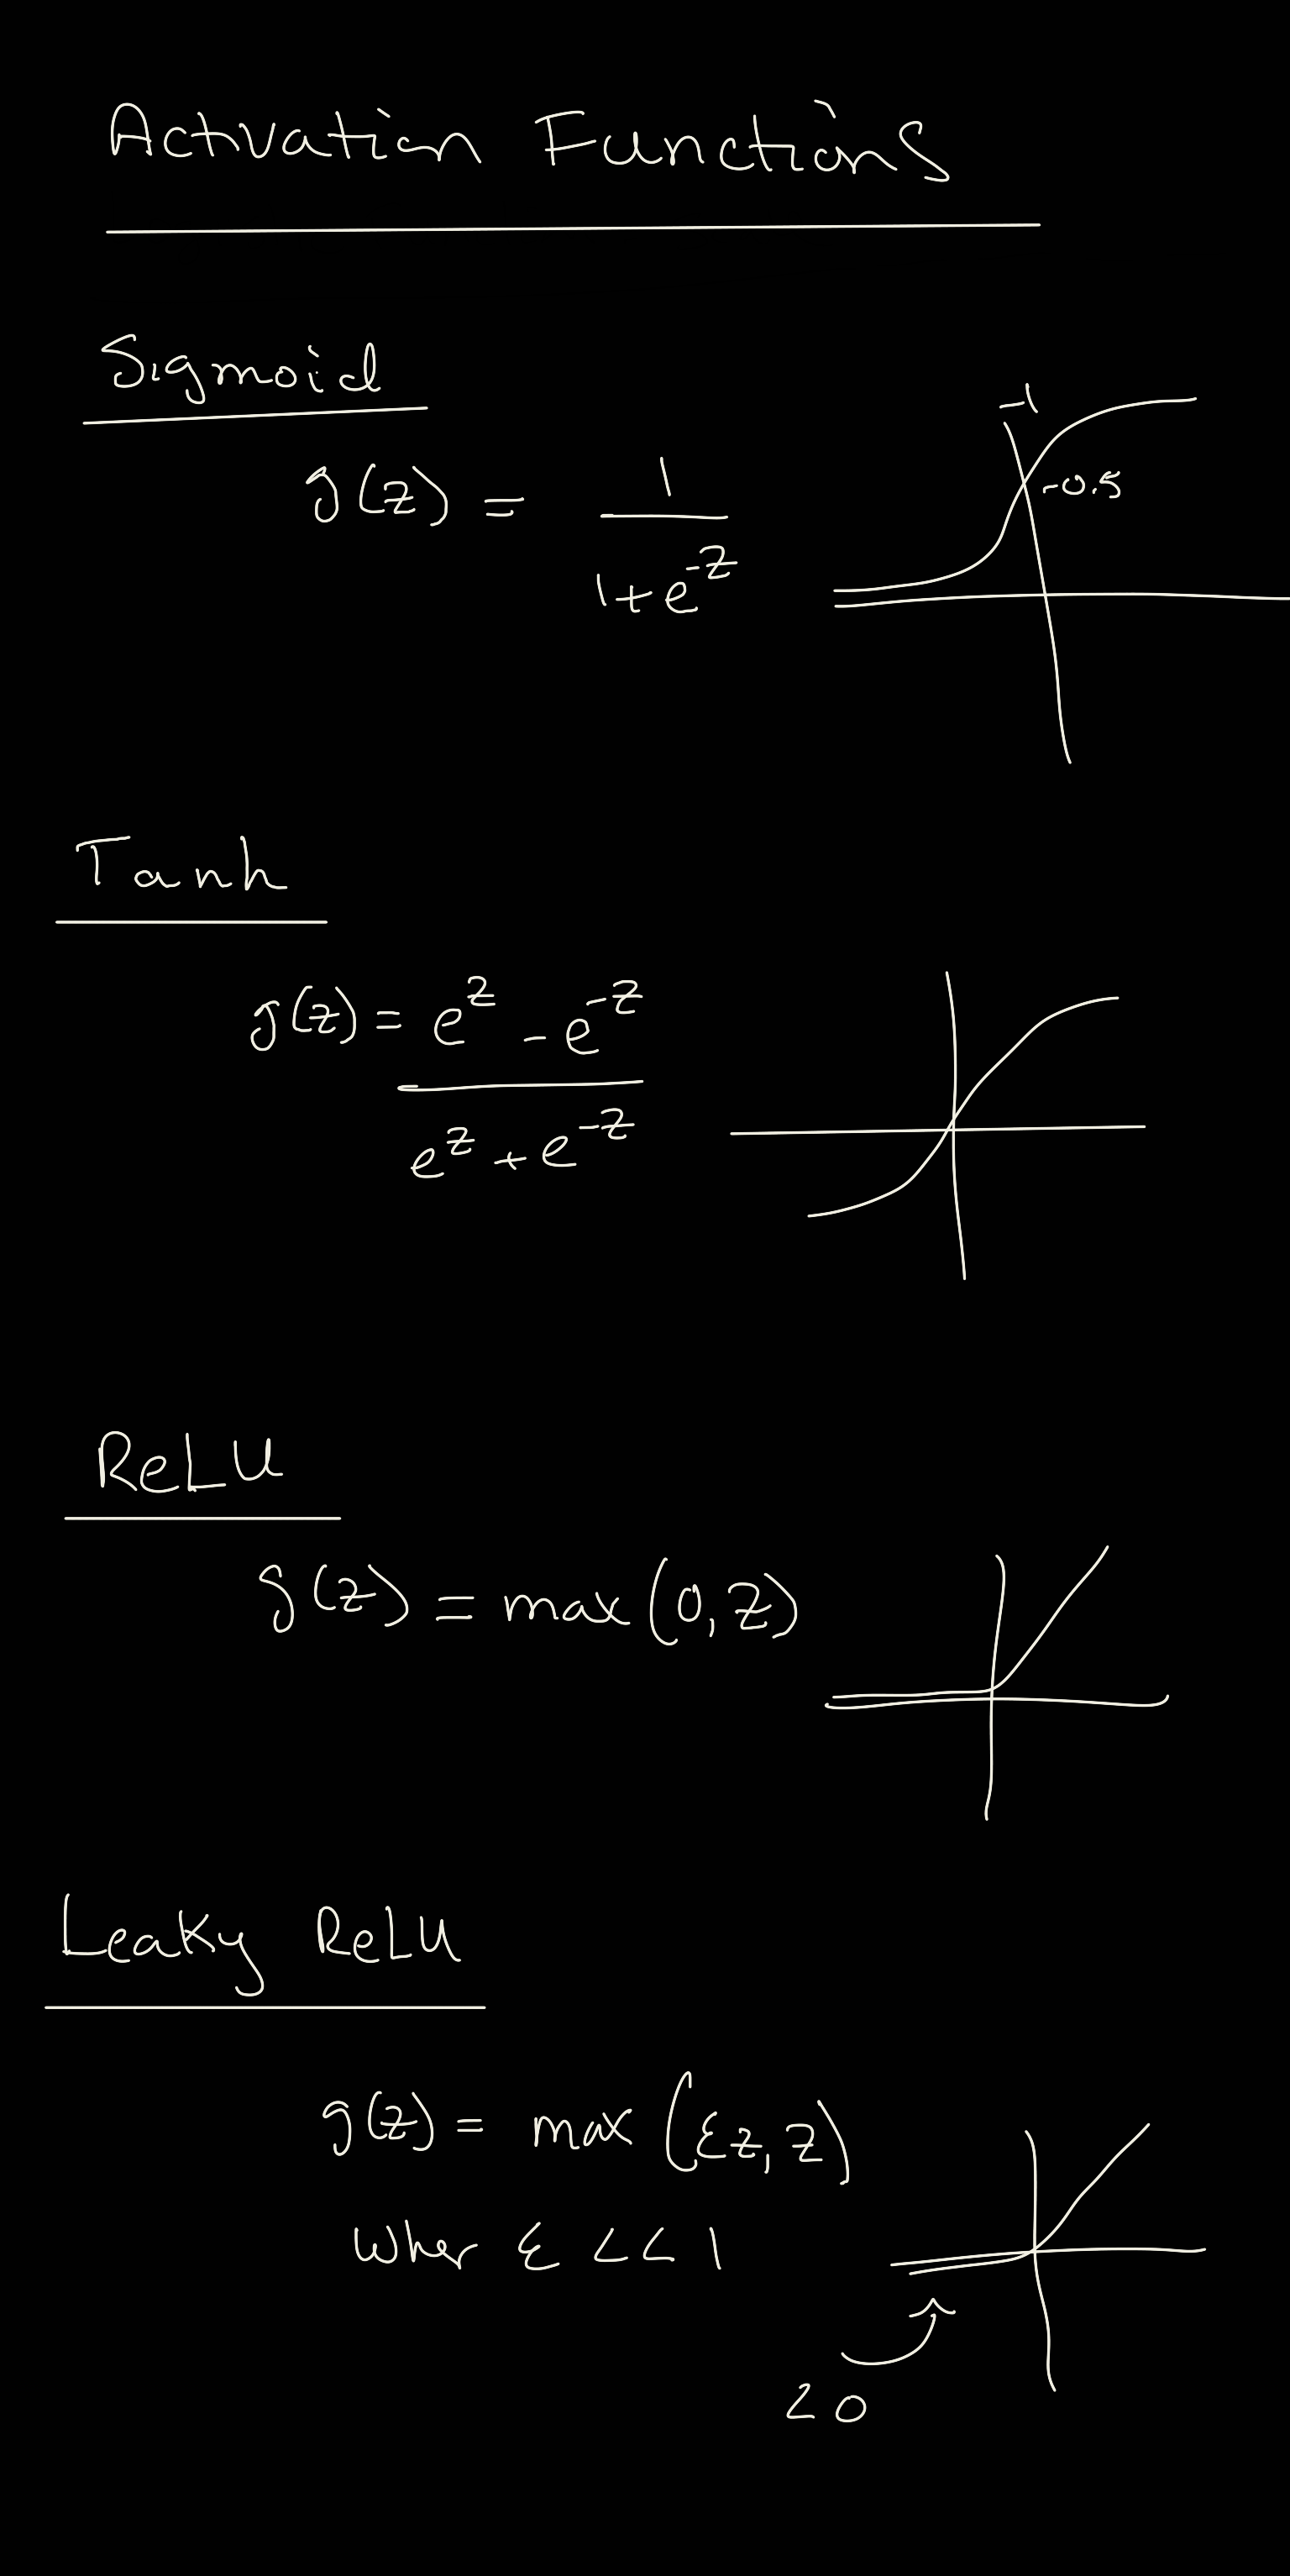 Activation Functions
Sigmoid
g(z) = 1 / 1+e^-z
-1
-0.5
Tanh
g(z) = e^z - e^-z / e^z + e^-z
ReLU
g(z) = max(0,z)
Leaky ReLU
g(z) = max(εz, z)
wher ε << 1
<0